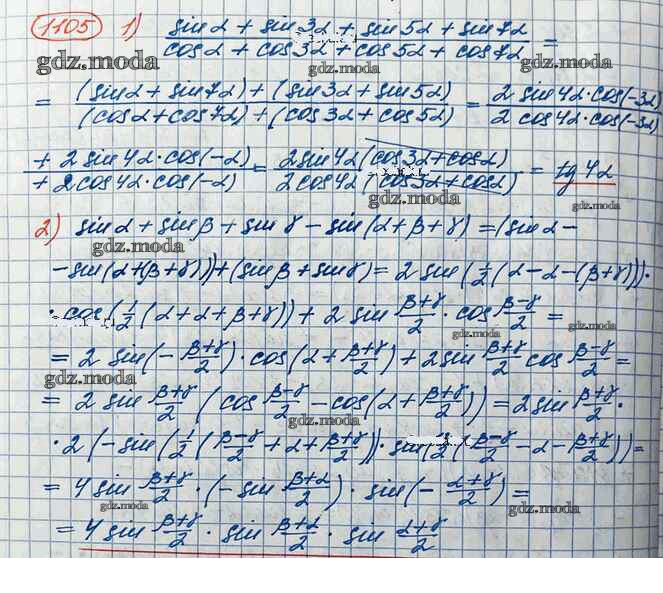 1105 1) sin α + sin 3α + sin 5α + sin 7α / cos α + cos 3α + cos 5α + cos 7α =
gdz.moda gdz.moda gdz.moda
= (sin α + sin 7α) + (sin 3α + sin 5α) / (cos α + cos 7α) + (cos 3α + cos 5α) = 2 sin 4α · cos(-3α) / 2 cos 4α · cos(-3α)
+ 2 sin 4α · cos(-α) / + 2 cos 4α · cos(-α) = 2 sin 4α (cos 3α + cos α) / 2 cos 4α (cos 3α + cos α) = tg 4α
gdz.moda gdz.moda gdz.moda
2) sin α + sin β + sin γ - sin(α + β + γ) = (sin α -
gdz.moda
- sin(α + (β + γ))) + (sin β + sin γ) = 2 sin (1/2 (α - α - (β + γ))) ·
· cos (1/2 (α + α + β + γ)) + 2 sin β+γ/2 · cos β-γ/2 =
gdz.moda gdz.moda
= 2 sin (- β+γ/2) · cos (α + β+γ/2) + 2 sin β+γ/2 cos β-γ/2 =
gdz.moda
= 2 sin β+γ/2 (cos β-γ/2 - cos (α + β+γ/2)) = 2 sin β+γ/2 ·
gdz.moda
· 2 (- sin (1/2 (β-γ/2 + α + β+γ/2)) · sin (1/2 (β-γ/2 - α - β+γ/2)) =
= 4 sin β+γ/2 · (- sin β+α/2) · sin (- α+γ/2) =
gdz.moda gdz.moda
= 4 sin β+γ/2 · sin β+α/2 · sin α+γ/2